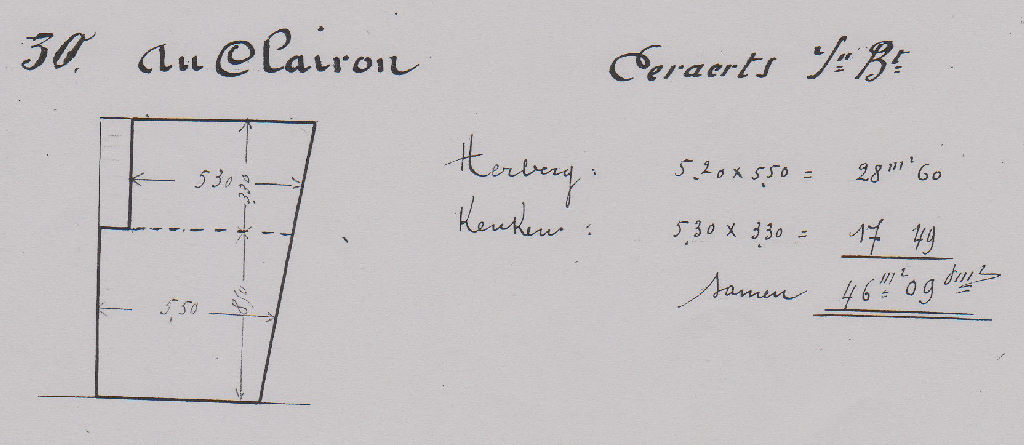 30. Au Clairon
Ceraerts
530
330
5,50
Herberg : 5,20 x 5,50 = 28 m² 60
Keuken : 5,30 x 3,30 = 17 49
Samen 46 m² 09 dm²